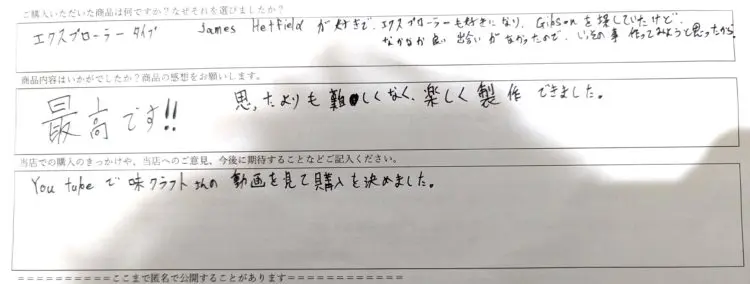 ご購入いただいた商品は何ですか？なぜそれを選びましたか？
エクスプローラー タイプ
James Hetfield が好きで、エクスプローラーも好きになり、Gibsonを探していたけど、
なかなか良い出会いがなかったので、いっその事 作ってみようと思ったから
商品内容はいかがでしたか？商品の感想をお願いします。
最高です!!
思ったよりも難しくなく、楽しく製作できました。
当店での購入のきっかけや、当店へのご意見、今後に期待することなどご記入ください。
You tubeで味クラフトさんの動画を見て購入を決めました。
＝＝＝＝＝＝＝＝＝＝ここまで匿名で公開することがあります＝＝＝＝＝＝＝＝＝＝＝＝